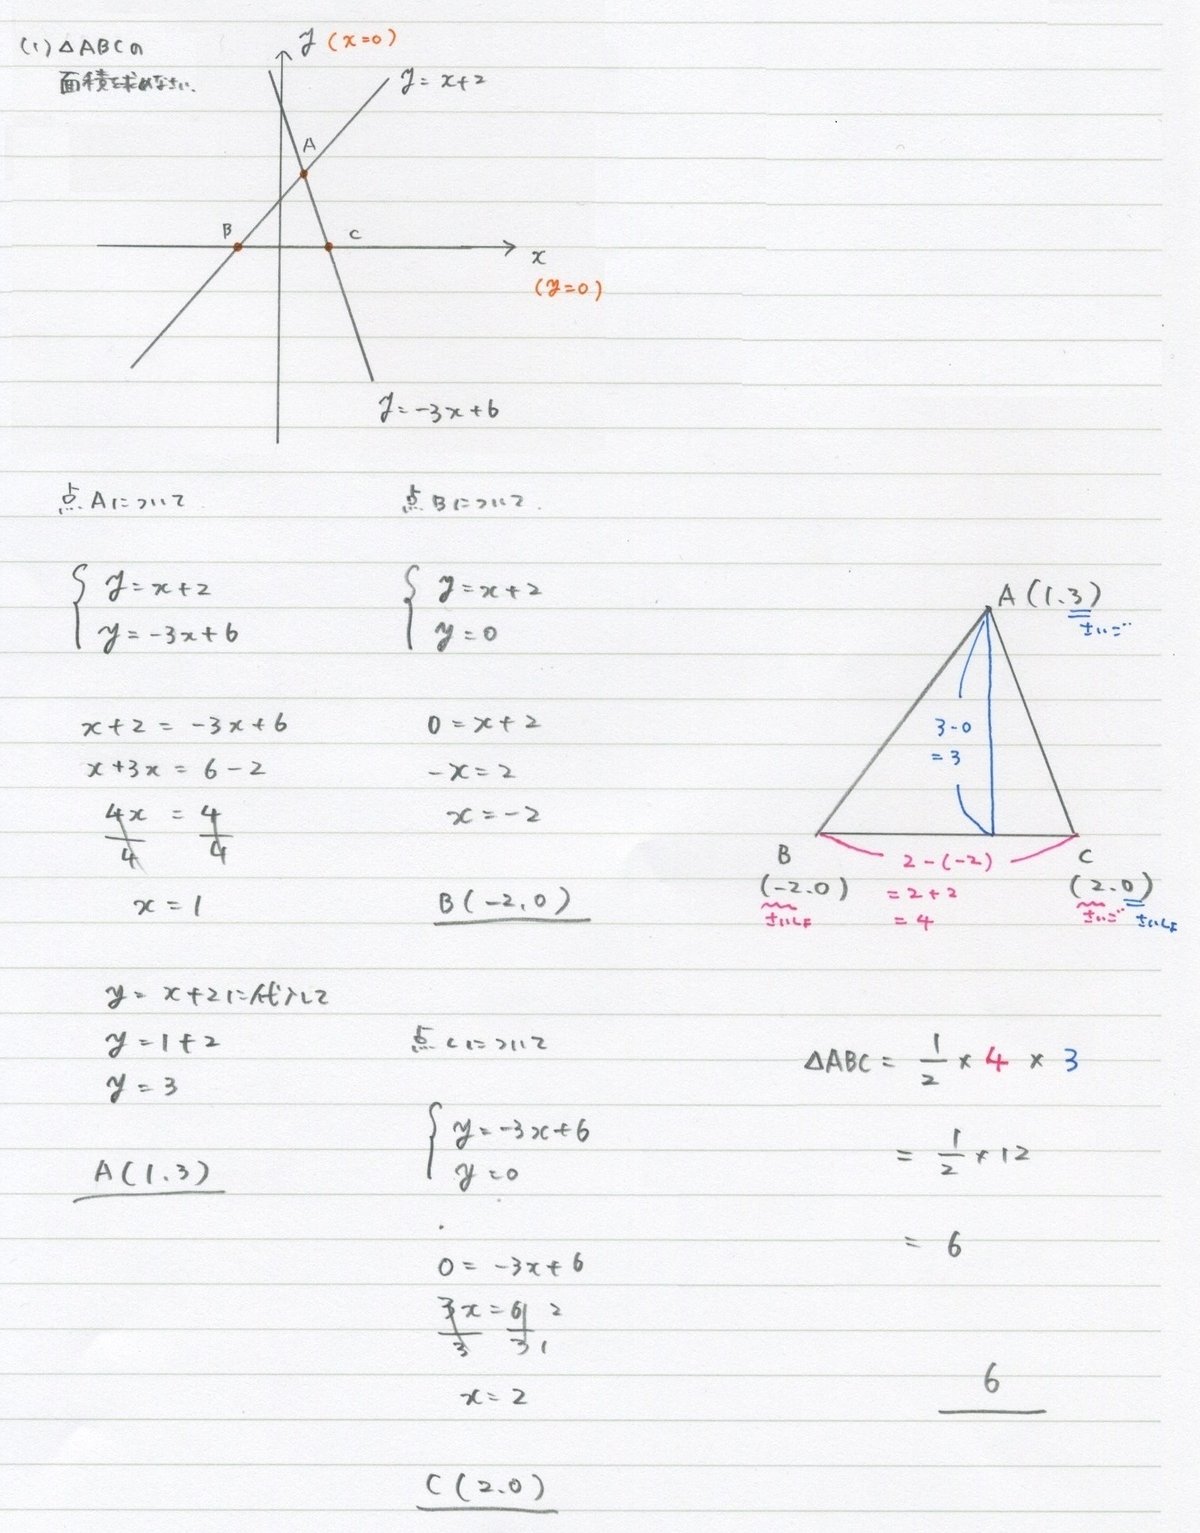 (1) △ABCの
面積を求めなさい.
y (x=0)
y=x+2
A
B
C
x
(y=0)
y=-3x+6
点Aについて
y=x+2
y=-3x+6
x+2=-3x+6
x+3x=6-2
4x/4=4/4
x=1
y=x+2に代入して
y=1+2
y=3
A(1.3)
点Bについて.
y=x+2
y=0
0=x+2
-x=2
x=-2
B(-2,0)
点Cについて
y=-3x+6
y=0
0=-3x+6
3x/3=6/3 2 1
x=2
C(2.0)
A(1.3)
さいご
3-0
=3
B
(-2.0)
さいしょ
2-(-2)
=2+2
=4
C
(2.0)
さいご さいしょ
△ABC=1/2×4×3
=1/2×12
=6
6